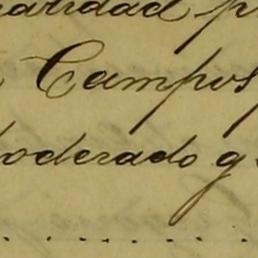 aridad p
Campos
oderado g